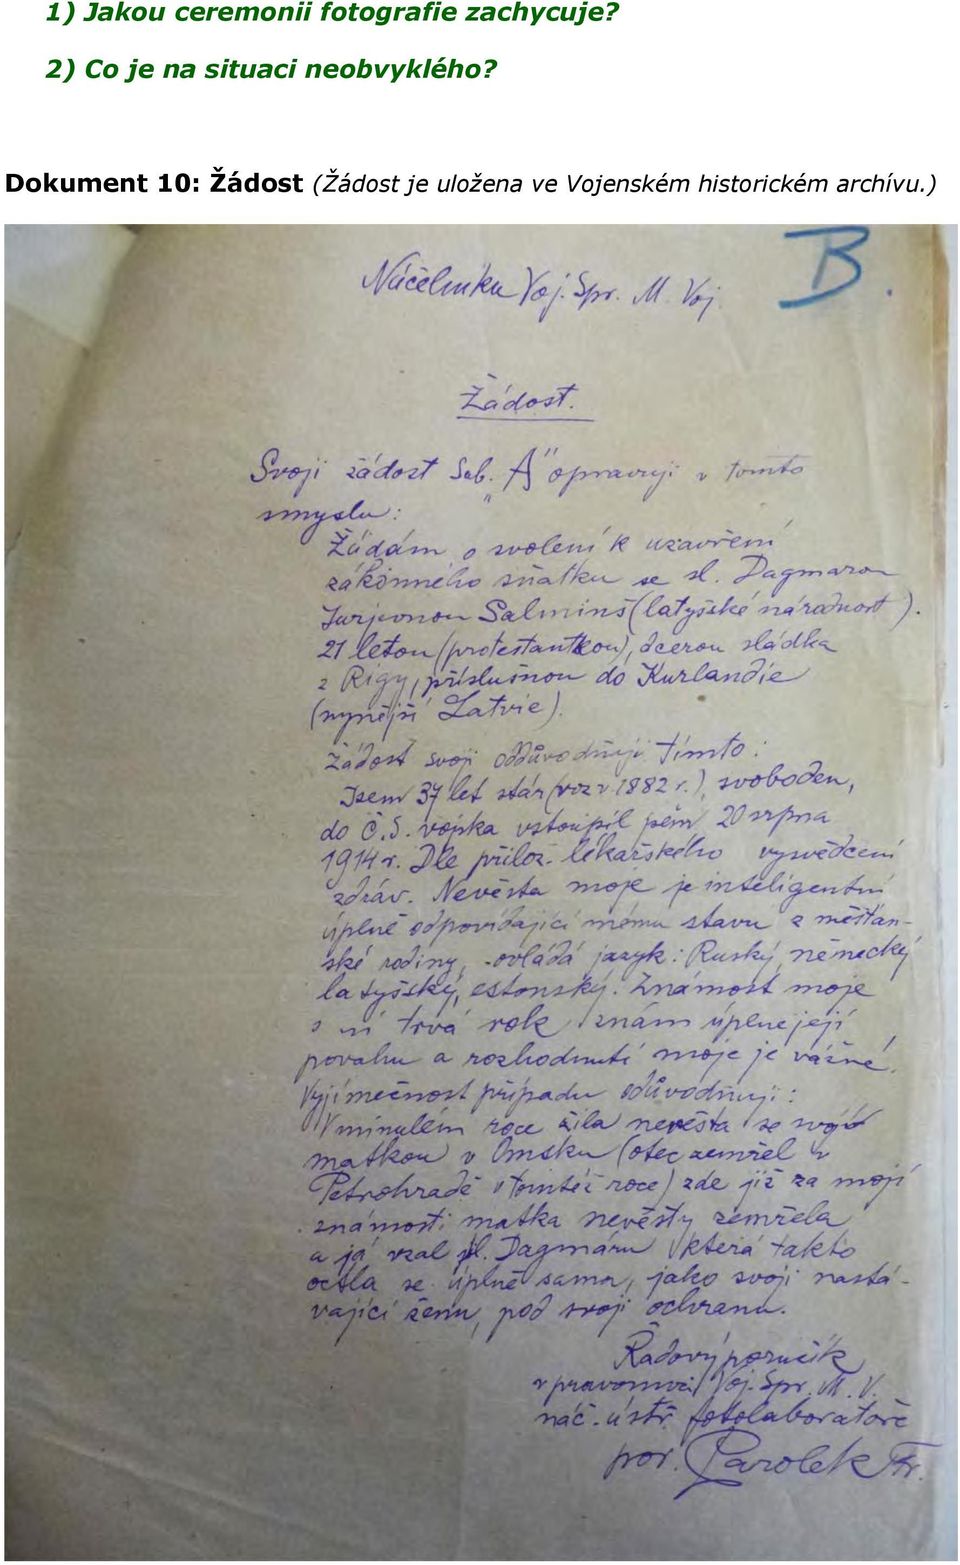 1) Jakou ceremonii fotografie zachycuje?
2) Co je na situaci neobvyklého?
Dokument 10: Žádost (Žádost je uložena ve Vojenském historickém archívu.)
B.
Náčelníku Voj. Spr. M. Voj.
Žádost.
Svoji žádost sub. „A" opravuji v tomto
smyslu:
Žádám o svolení k uzavření
zákonného sňatku se sl. Dagmarou
Jurjevnou Salminš (latyšské národnost).
21 letou (protestantkou), dcerou sládka
z Rigy, příslušnou do Kurlandie
(nynější Latvie).
Žádost svoji oddůvodňuji tímto:
Jsem 37 let stár (roz v 1882 r.), svoboden,
do Č.S. vojska vstoupil jsem 20 srpna
1914 r. Dle přilož. lékařského vysvědčení
zdráv. Nevěsta moje je inteligentní
úplně odpovídající mému stavu z měšťan-
ské rodiny, ovládá jazyk: Ruský, německý
latyšský, estonský. Známost moje
s ní trvá rok, znám úplně její
povahu a rozhodnutí moje je vážné.
Vyjímečnost případu odůvodňuji:
V minulém roce žila nevěsta se svojí
matkou v Omsku (otec zemřel v
Petrohradě v tomtéž roce) zde již za mojí
známosti matka nevěsty zemřela
a já vzal sl. Dagmaru, která takto
octla se úplně sama, jako svoji nastá-
vající ženu, pod svoji ochranu.
Řadový poručík
v pravomoci Voj. Spr. M. V.
náč. ústř. fotolaboratoře
por. Parolek Fr.